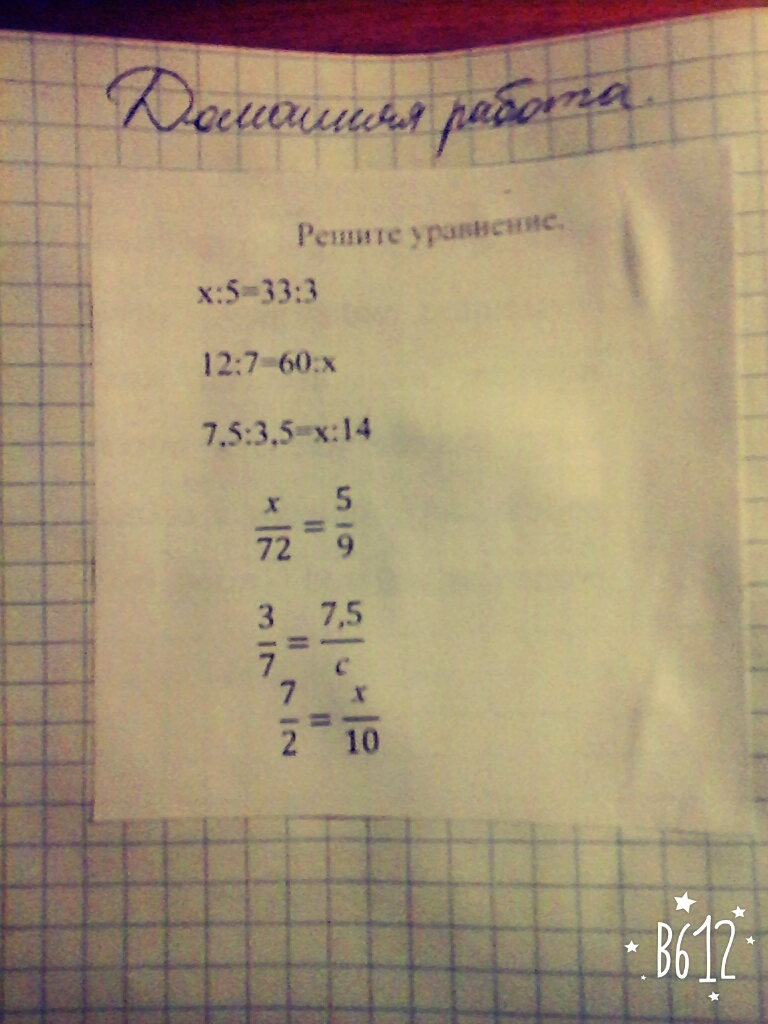 Домашняя работа.
Решите уравнение.
x:5=33:3
12:7=60:x
7,5:3,5=x:14
x/72 = 5/9
3/7 = 7,5/c
7/2 = x/10
B612